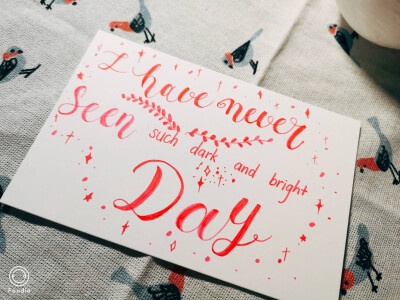 I have never
Seen such dark and bright
Day
Foodie